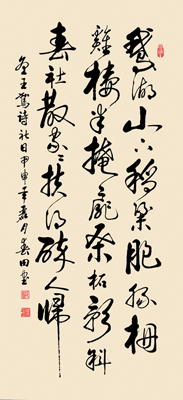 鵝湖山下稻粱肥豚柵
雞棲半掩扉桑柘影斜
春社散家〻扶得醉人歸
王駕詩社日甲申年月春田書